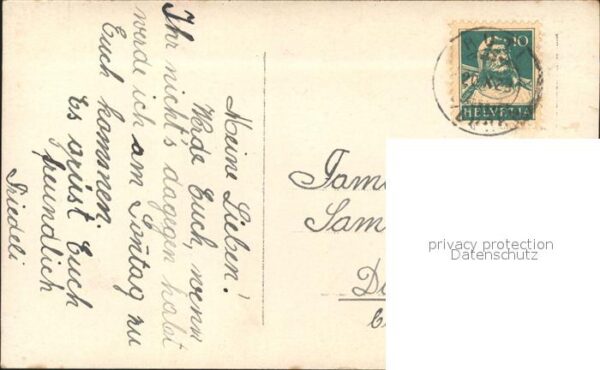 Meine Lieben!
Werde Euch, wenn
Ihr nichts dagegen habt
werde ich am Sontag zu
Euch kommen.
Es grüst Euch
freundlich
Friedeli
10
HELVETIA
Fam
Sam
D
privacy protection
Datenschutz